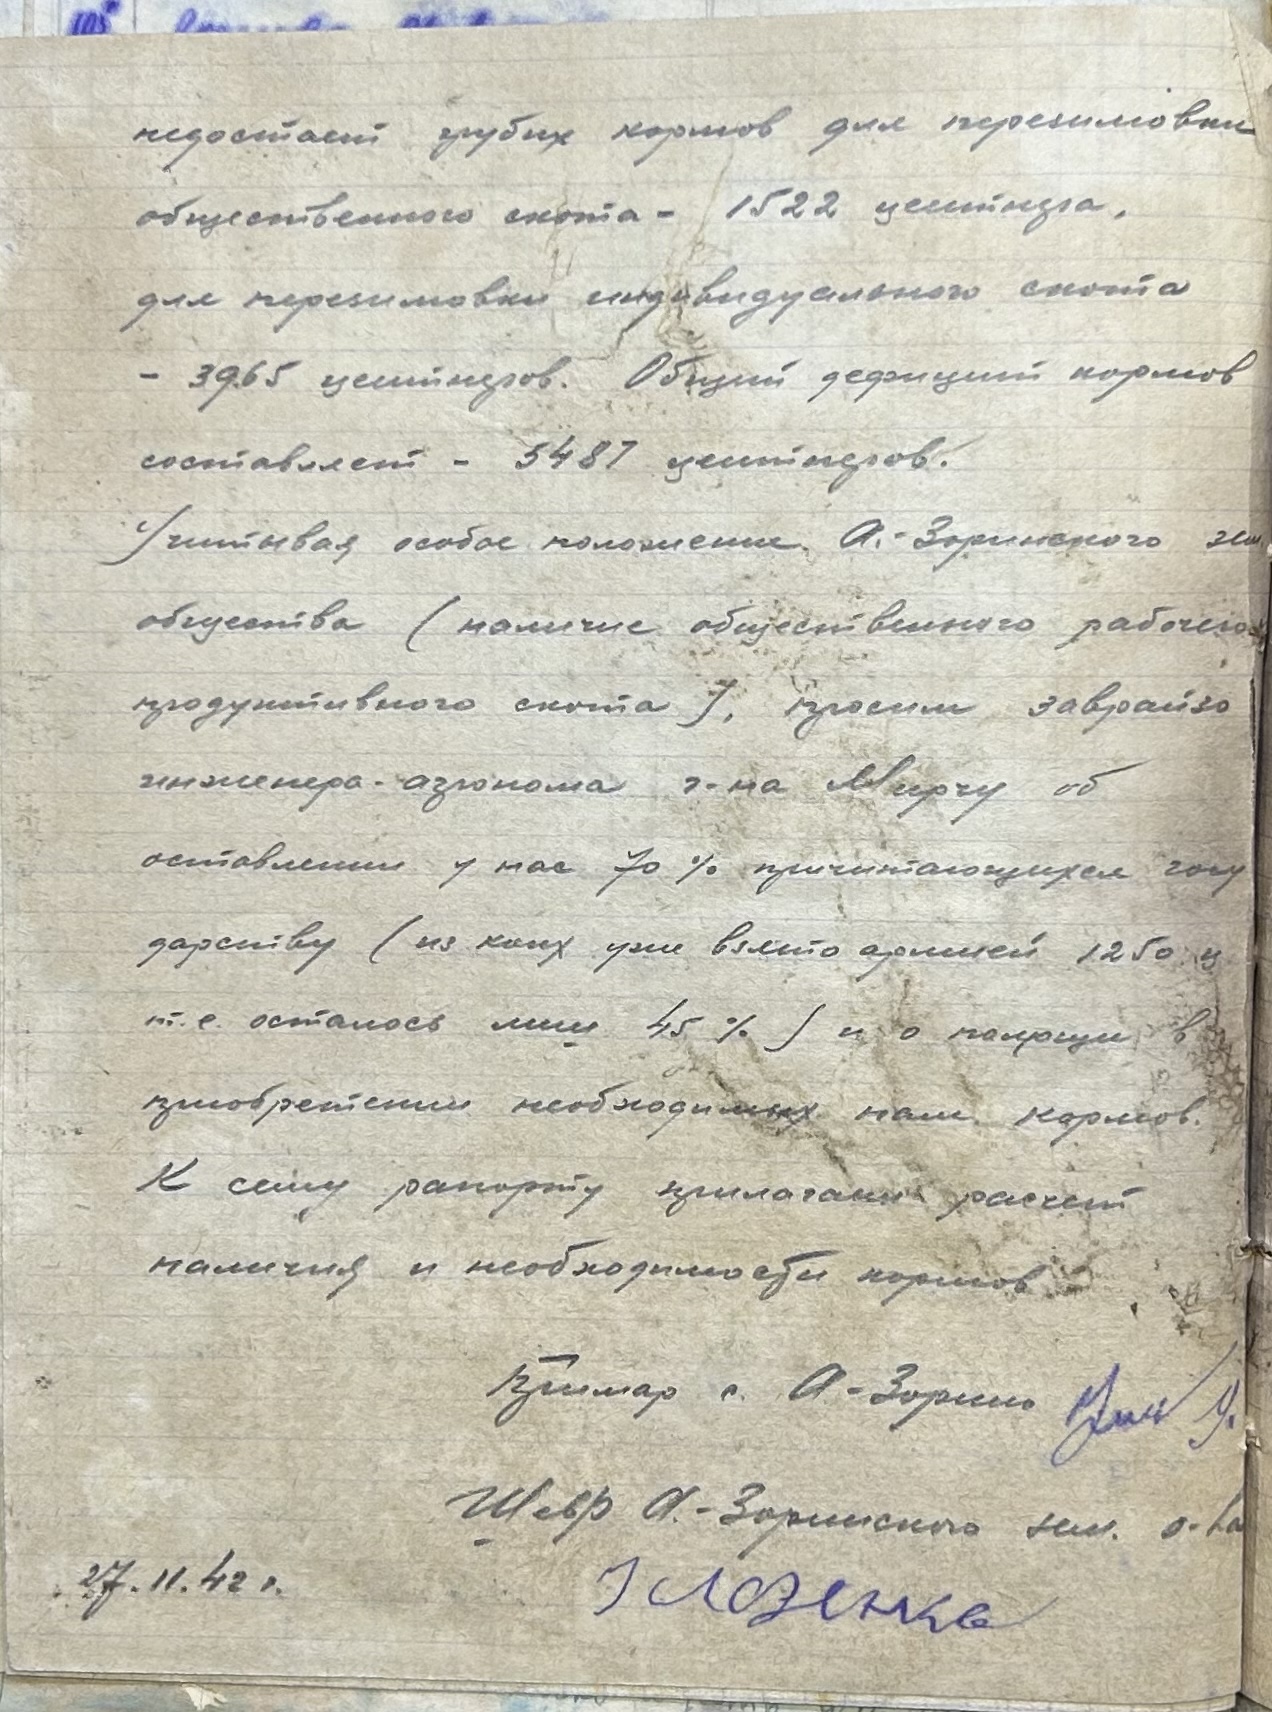 недостает грубых кормов для перезимовки
общественного скота - 1522 центнера,
для перезимовки индивидуального скота
- 3965 центнеров. Общий дефицит кормов
составляет - 5487 центнеров.
Учитывая особое положение А.-Зоринского зем.
общества (наличие общественного рабочего
продуктивного скота), просим заврайзо
инженера-агронома г-на Мирчу об
оставлении у нас 70% причитающихся госу
дарству (из коих уже взято армией 1250 ц
т.е. осталось лиш 45%) и о помощи в
приобретении необходимых нам кормов.
К сему рапорту прилагаем расчет
наличия и необходимости кормов
Примар с. А-Зорино
Шеф А.-Зоринского зем. о-ва
27.11.42 г.